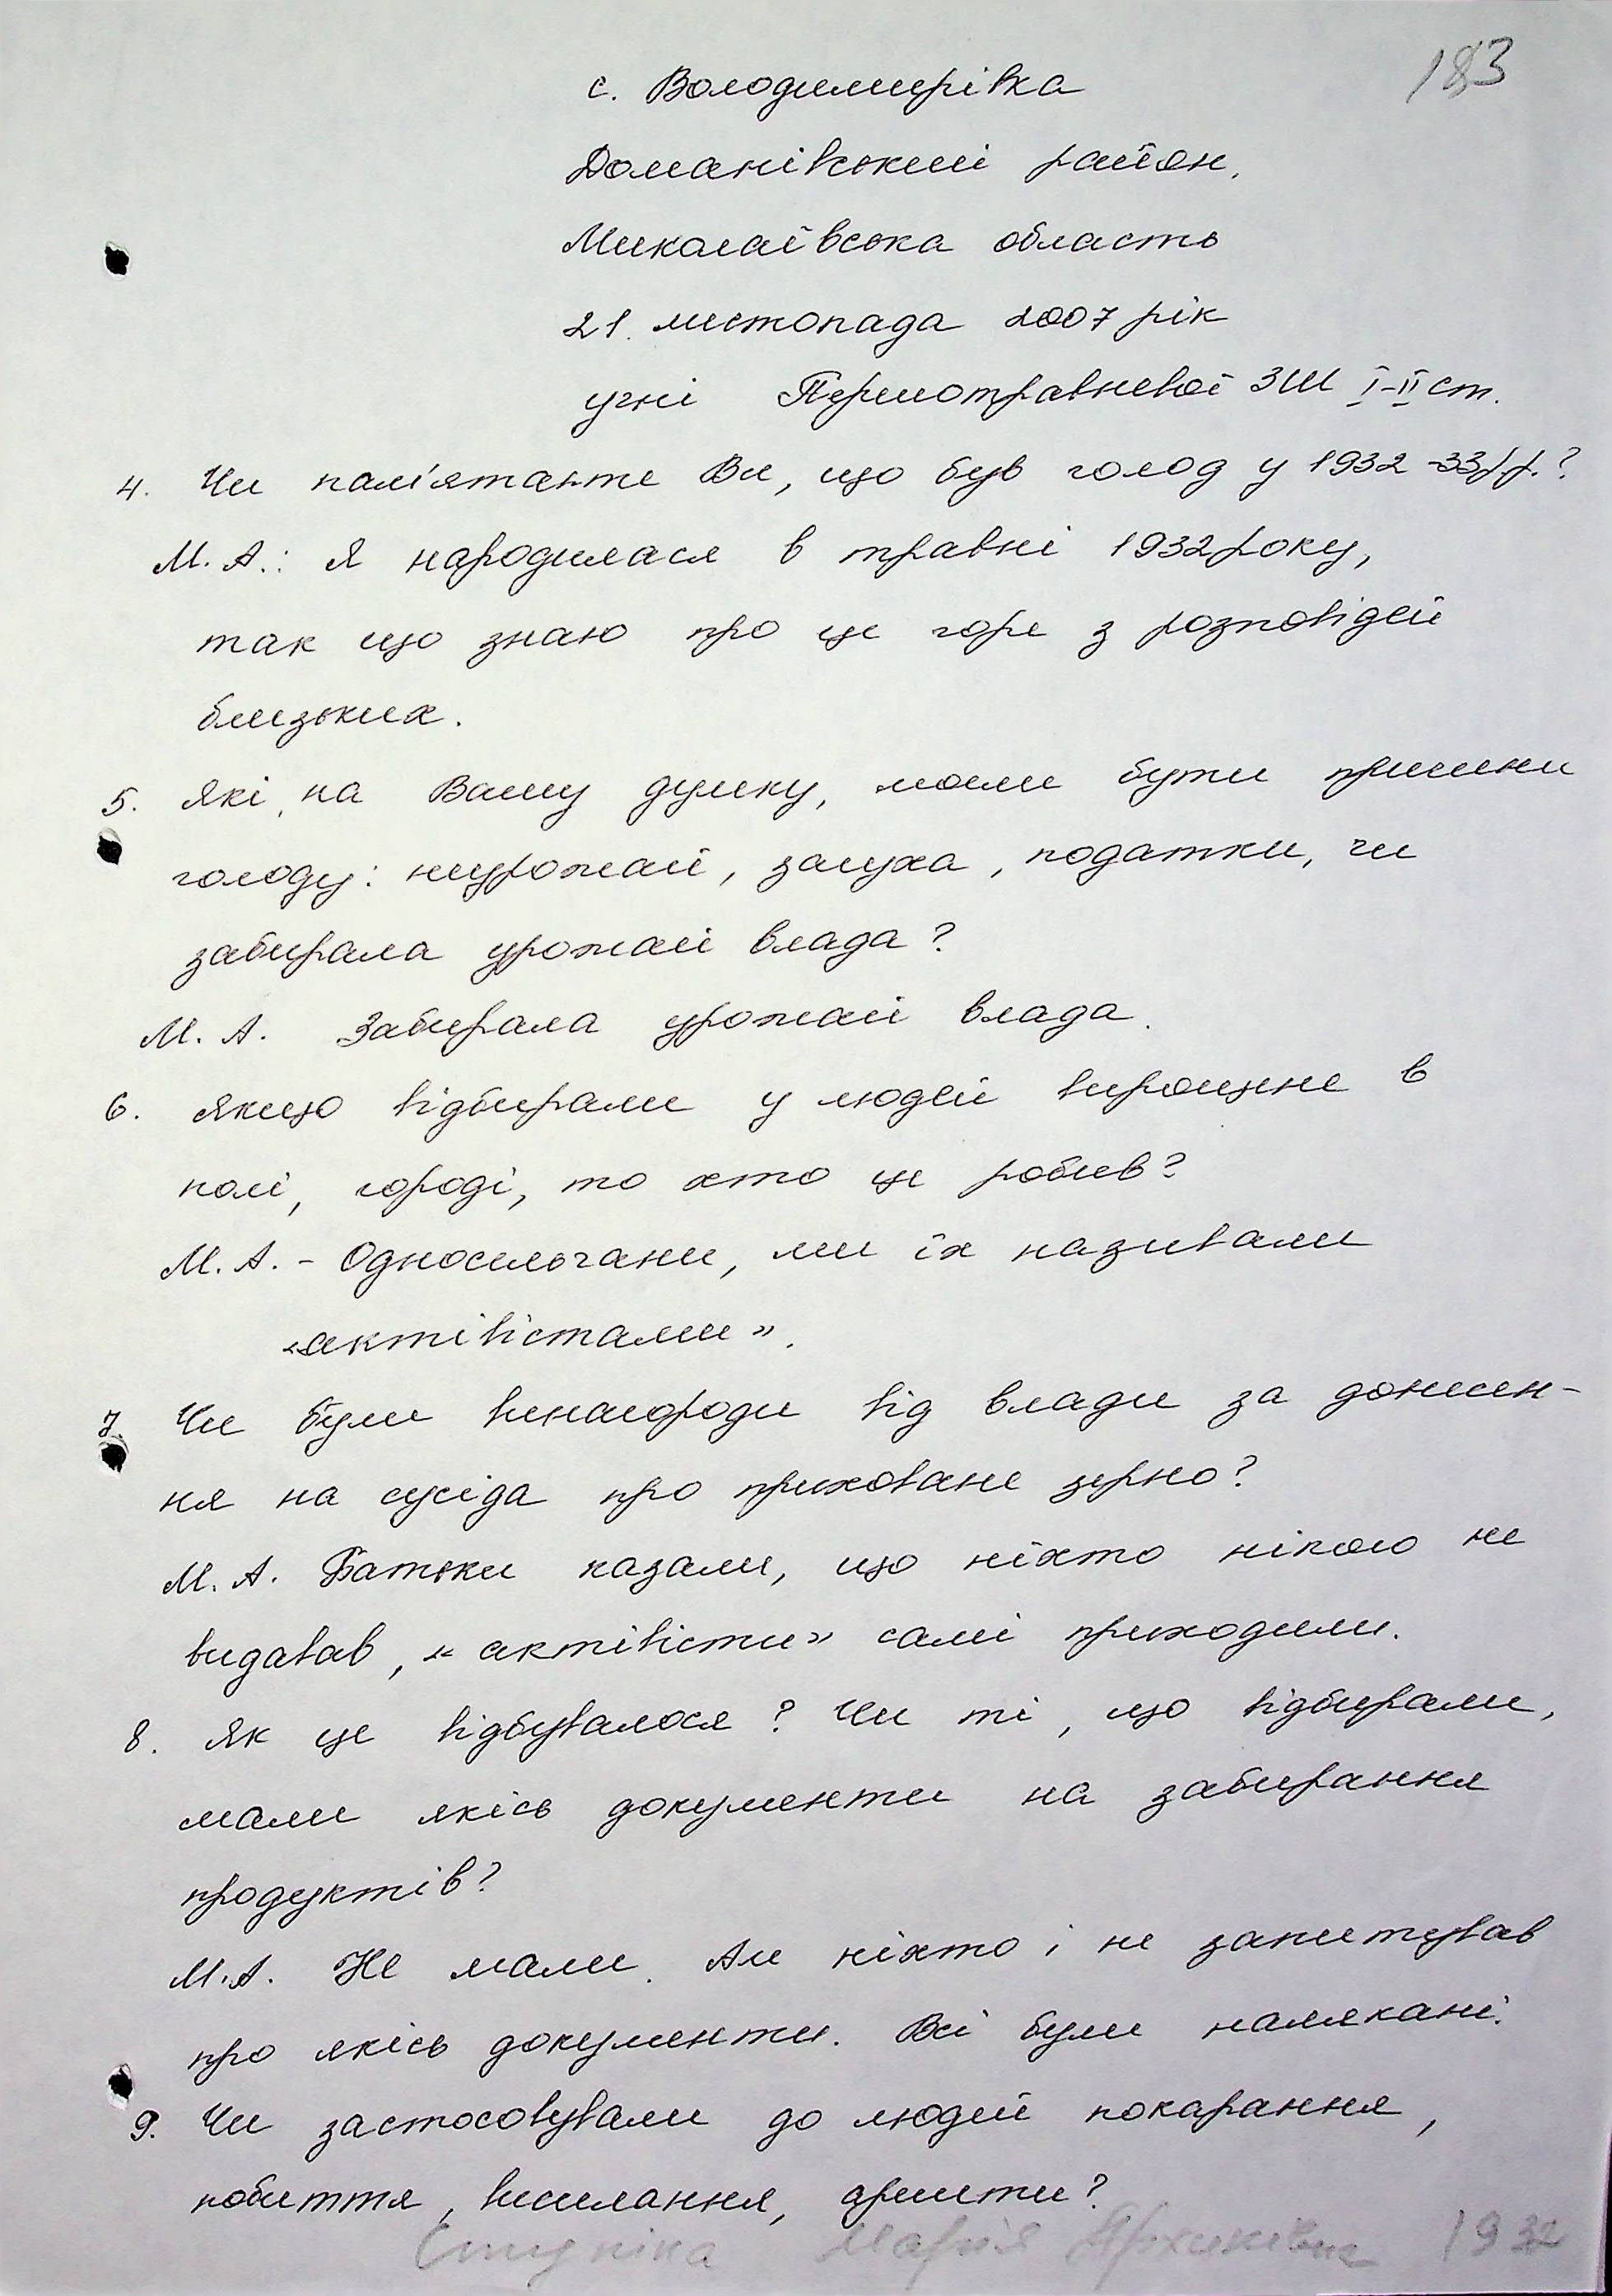 183
с. Володимирівка
Доманівський район.
Миколаївська область
21. листопада 2007 рік
учні Першотравневої ЗШ І-ІІ ст.
4. Чи пам'ятаєте Ви, що був голод у 1932-33р.р.?
М. А.: Я народилася в травні 1932 року,
так що знаю про це горе з розповідей
близьких.
5. Які, на Вашу думку, могли бути причини
голоду: неурожай, засуха, податки, чи
забирала урожай влада?
М. А. Забирала урожай влада.
6. Якщо відбирали у людей вирощене в
полі, городі, то хто це робив?
М. А. - Односельчани, ми їх називали
«актівістами».
7. Чи були винагороди від влади за донесен-
ня на сусіда про приховане зерно?
М. А. Батьки казали, що ніхто нікого не
видавав, «актівісти» самі приходили.
8. Як це відбувалося? Чи ті, що відбирали,
мали якісь документи на забирання
продуктів?
М.А. Не мали. Але ніхто і не запитував
про якісь документи. Всі були налякані.
9. Чи застосовували до людей покарання,
побиття, виселання, арешти?
Марія 1932